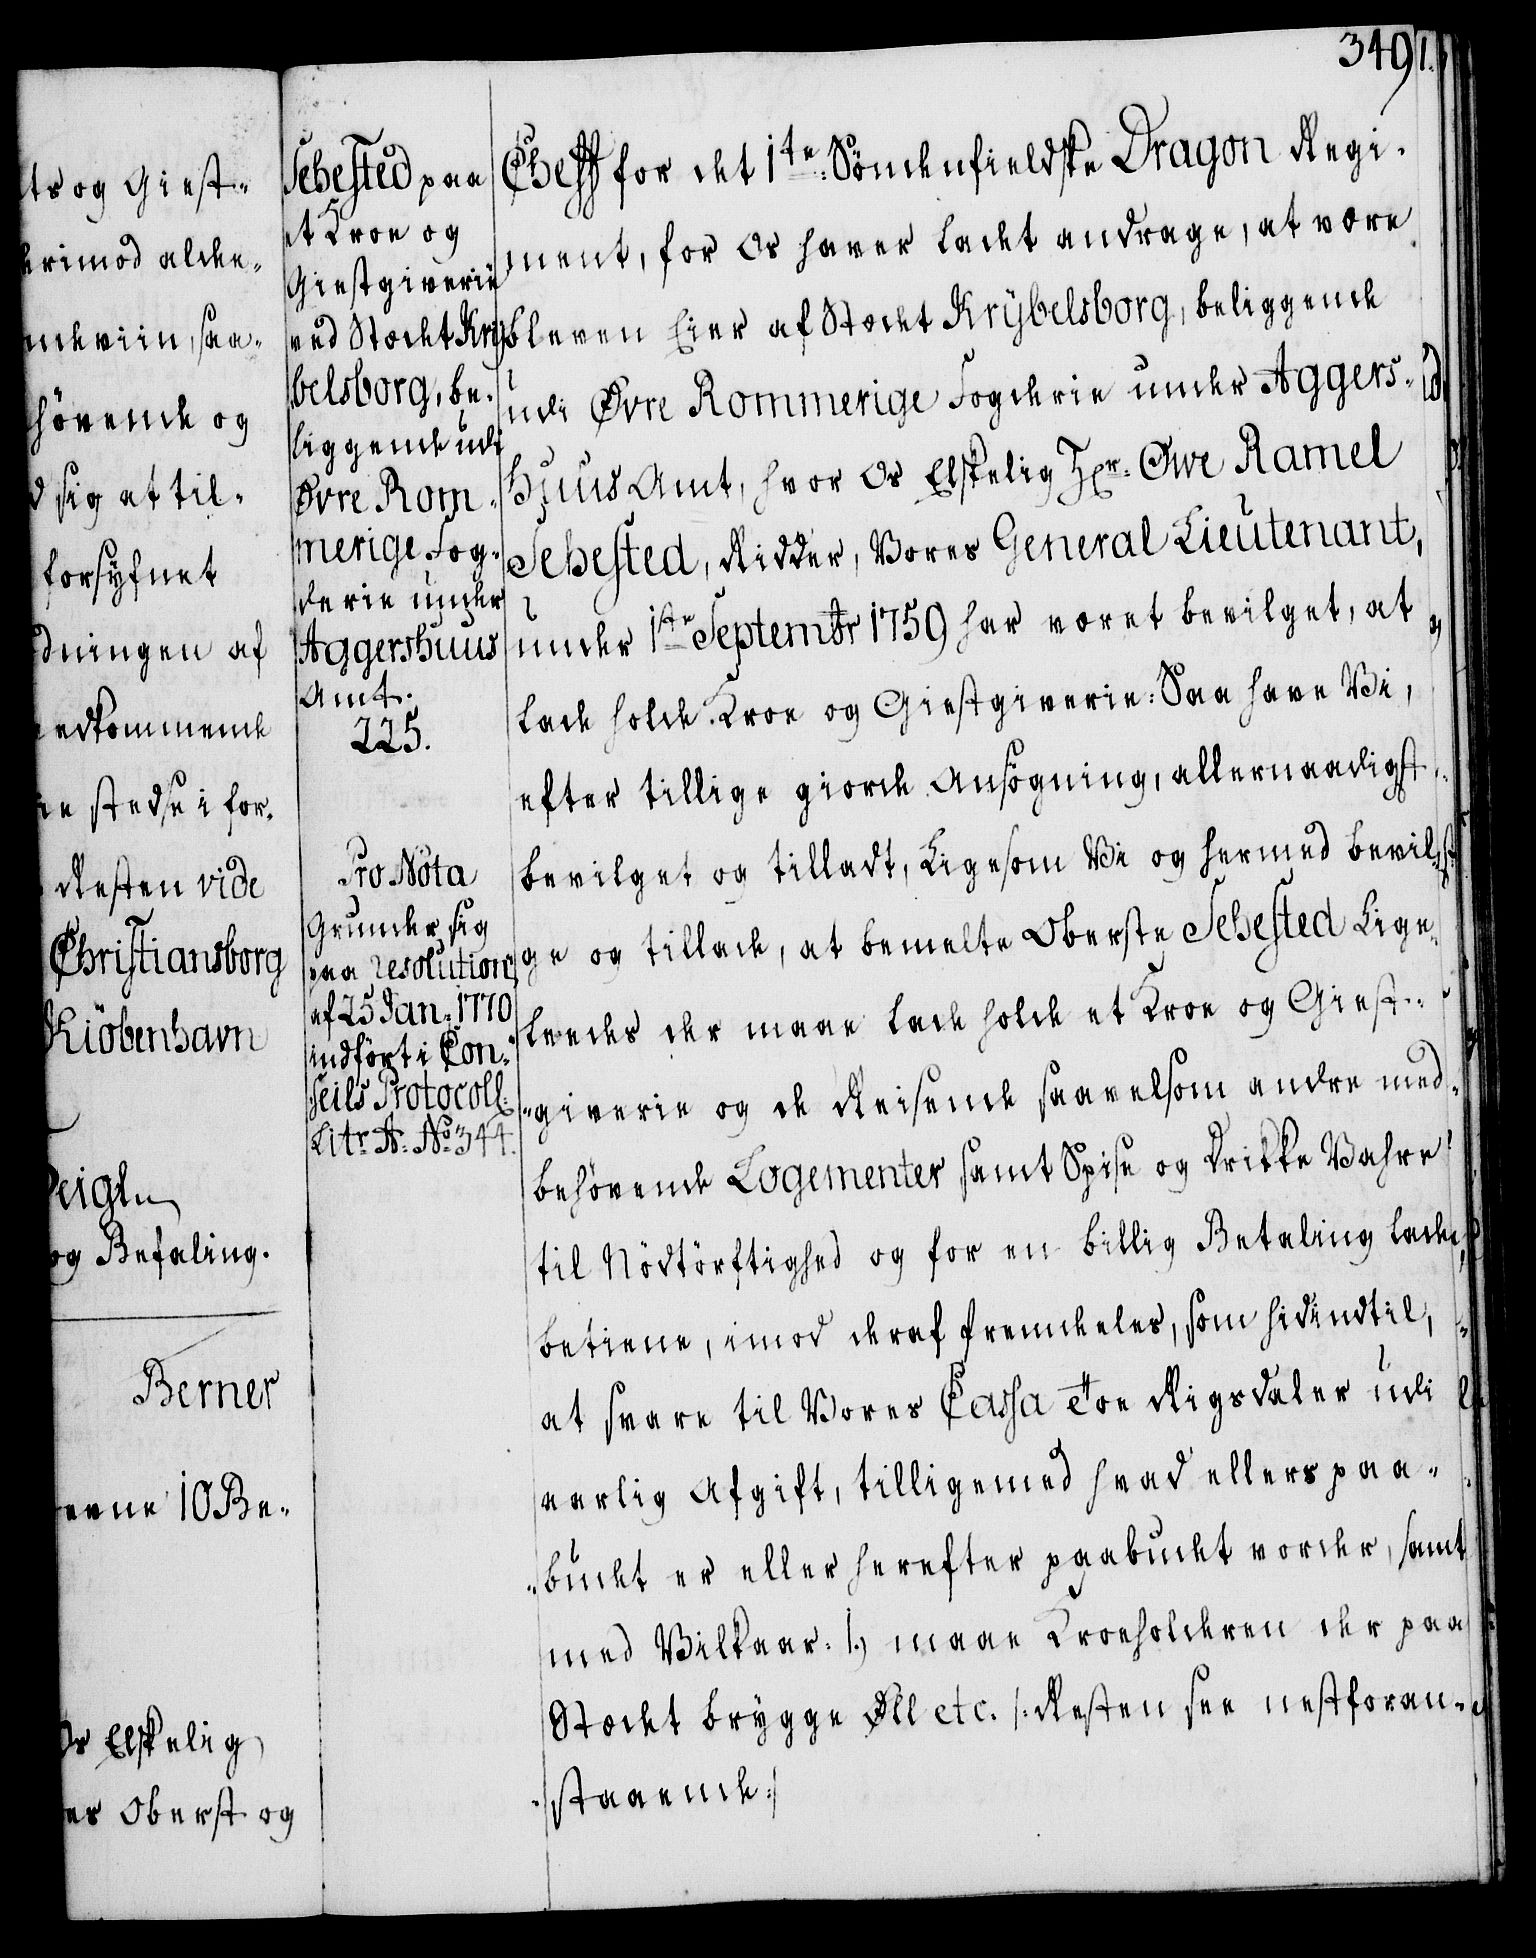 349
1.
ts og Giest-
erimod alde-
ndeviin, saa-
hövende og
d sig at til-
forsÿnet
dningen af
edkommende
ne stedse i for-
Resten vide
Christiansborg
Kiöbenhavn
og Befaling.
Berner
evne 10 Be-
Os Elskelig
es Oberst og
Sehested paa
et Kroe og
Giestgiverie
ved Stædet Krÿ-
belsborg, be-
liggende udi
Øvre Rom-
merige Fog-
derie under
Aggershuus
Amt.
225.
Pro Nota
Grunder sig
paa resolution
af 25 Jan: 1770
indfört i Con-
seils Protocoll
Litr: A: No 344.
Cheff for det 1te Söndenfieldske Dragon Regi-
ment, for Os haver ladet andrage, at være
bleven Eier af Stædet Krÿbelsborg, beliggende
udi Øvre Rommerige Fogderie under Aggers-
huus Amt, hvor Os Elskelig Hr: Owe Ramel
Sehested, Ridder, Vores General Lieutenant,
under 1ste Septembr 1759 har været bevilget, at
lade holde Kroe og Giestgiverie: Saa have Vi,
efter tillige giorde Ansögning, allernaadigst
bevilget og tilladt, Ligesom Vi og hermed bevil-
ge og tillade, at bemelte Oberste Sehested Lige-
leedes der maae lade holde et Kroe og Giest-
giverie og de Reisende saavelsom andre med
behövende Logementer samt Spise og Drikke Vahre
til Nödtörftighed og for en billig Betaling lade
betiene, imod deraf fremdeles, som hidindtil,
at svare til Vores Cassa Toe Rigsdaler udi
aarlig Afgift, tilligemed hvad ellers paa-
budet er eller herefter paabudet vorder, samt
med Vilkaar: 1.) maae Kroeholderen der paa
Stædet brÿgge Øll etc. /: Resten see nestforan-
staaende :/